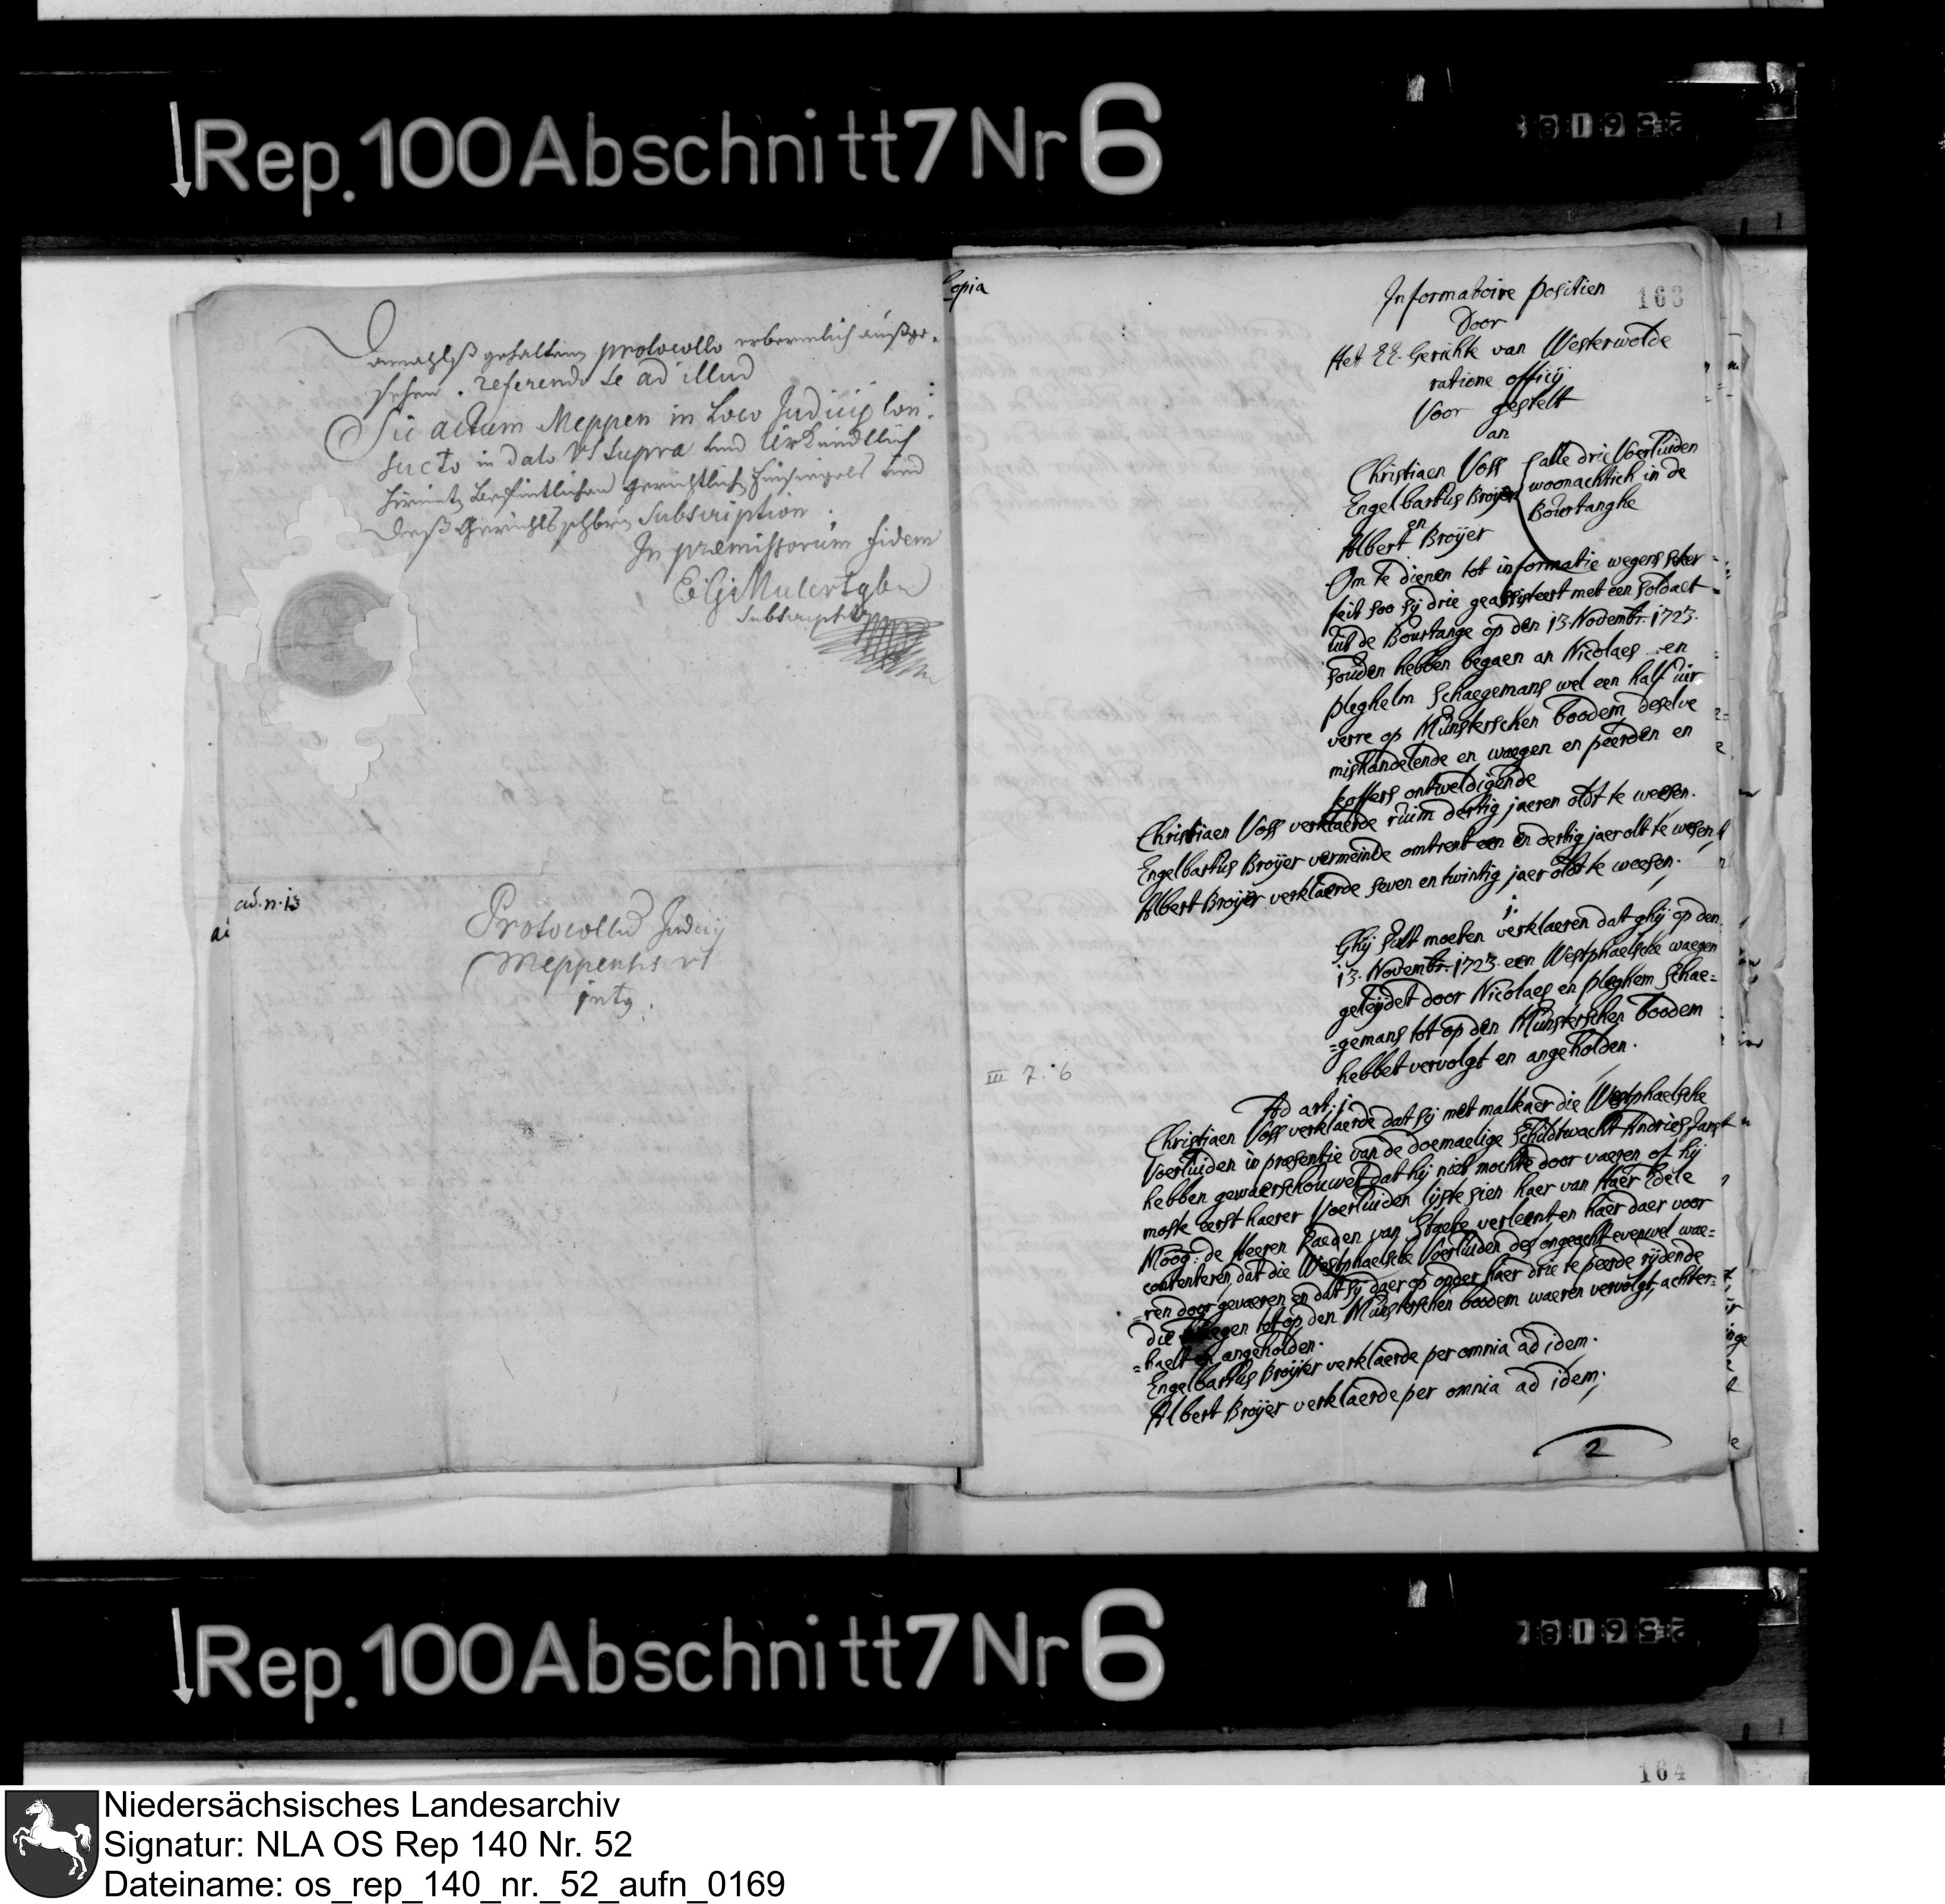 Rep. 100 Abschnitt 7 Nr 6
Damahlß gehaltenen protocollo
sehen. referendo se ad illud
Sic actum Meppen in Loco Judicij con:
sucto in dato Vt supra und Uhrkundtlich
gerichtlichen undt
deß Gerichtsschbrs Subscription.
In præmissorum fidem
subscripsit
ad. n. 13
Protocollum Judicij
Meppensis vt
intg.
Copia
168
Informatoire positien
Door
Het EE. Gerichte van Westerwolde
ratione officij
Voor gestelt
an
Christiaen Voss
Engelbartus Broijer
en
Albert Broijer
alle drie Voerluiden
woonachtich in de
Bourtanghe
Om te dienen tot informatie wegens seker
feit soo sij drie geassisteert met een soldaet
uit de Bourtange op den 13. Novembr. 1723.
souden hebben begaen an Nicolaes en
pleghelm Schaegemans wel een half uir
verre op Munsterschen boodem deselve
mishandelende en waegen en peerden en
koffers ontweldigende
Christiaen Voss verklaerde ruim dertig jaeren oldt te weesen.
Engelbartus Broijer vermeinde omtrent een en dertig jaer olt te wesen
Albert Broijer verklaerde seven en twintig jaer oldt te weesen.
1.
Ghij sult moeten verklaeren dat ghij op den
13. Novembr. 1723. een Westphaelsche waegen
geleijdet door Nicolaes en pleghem Schae=
=gemans tot op den Munsterschen boodem
hebbet vervolgt en angeholden.
III 7. 6
Ad art. 1.
Christiaen Voss verklaerde dat sij met malkaer die Westphaelsche
Voerluiden in præsentie van de doemaelige Schildtwacht Andries Janst
hebben gewaerschouwet dat hij niet mochte door vaeren of hij
moste eerst haerer Voerluiden lijste sien haer van Haer Edele
Moog: de Heeren Raeden van Staete verleent en haer daer voor
contenteren, dat die Westphaelsche Voerluiden des ongeacht evenwel wae=
=ren door gevaeren en dat sij daer op onder haer drie te peerde rijdende
die waegen tot op den Munsterschen boodem waeren vervolgt, achter=
=haelt en angeholden.
Engelbartus Broijer verklaerde per omnia ad idem.
Albert Broijer verklaerde per omnia ad idem.
2
Rep. 100 Abschnitt 7 Nr 6
164
Niedersächsisches Landesarchiv
Signatur: NLA OS Rep 140 Nr. 52
Dateiname: os_rep_140_nr._52_aufn_0169